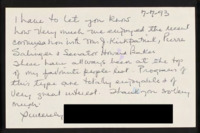 7-7-93
I have to let you know
how very much we enjoyed the recent
conversation with Ms. J. Kirkpatrick, Pierre
Salinger & Senator Howard Baker
These have always been at the top
of my favorite people list. Programs of
this type are highly enjoyable & of
very great interest. Thank you so very
much.
Sincerely